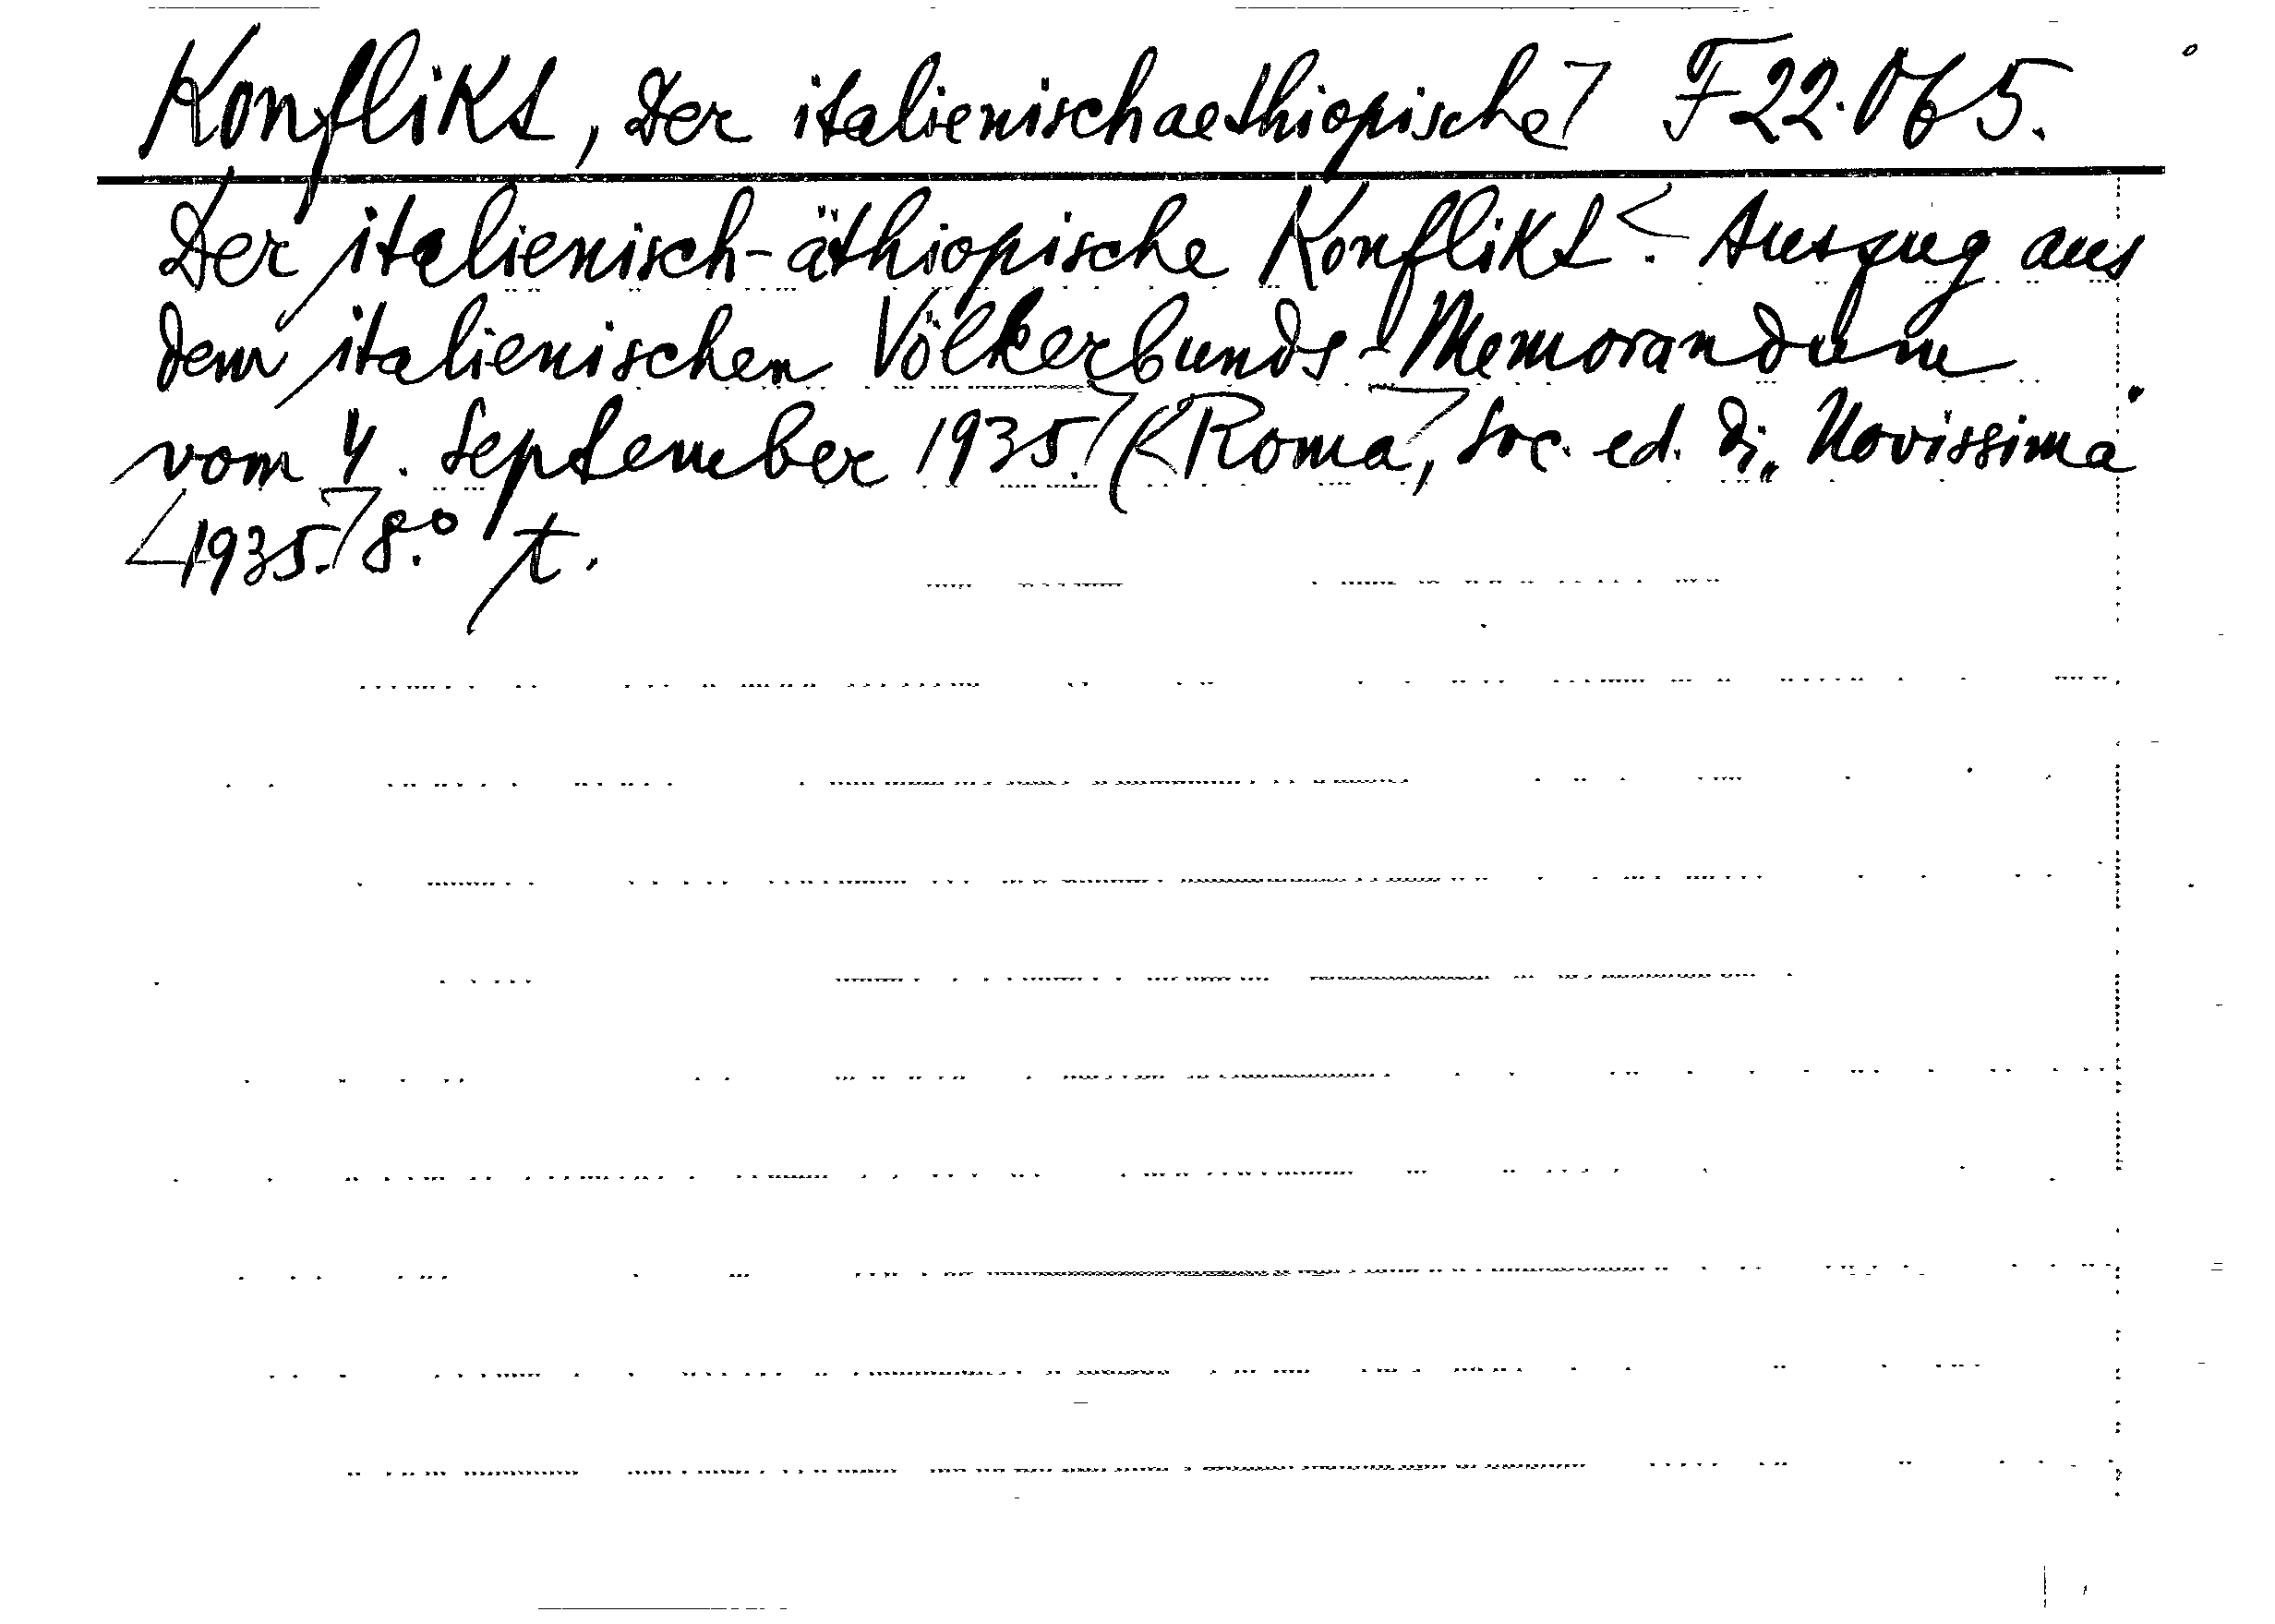 Konflikt, Der italienischaethiopische⌉ F 22.065.
Der italienisch-äthiopische Konflikt <. Auszug aus
dem italienischen Völkerbunds-Memorandum
vom 4. September 1935.⌉ (<Roma⌉, Soc. ed. di „Novissima"
<1935.⌉ 8.° t.